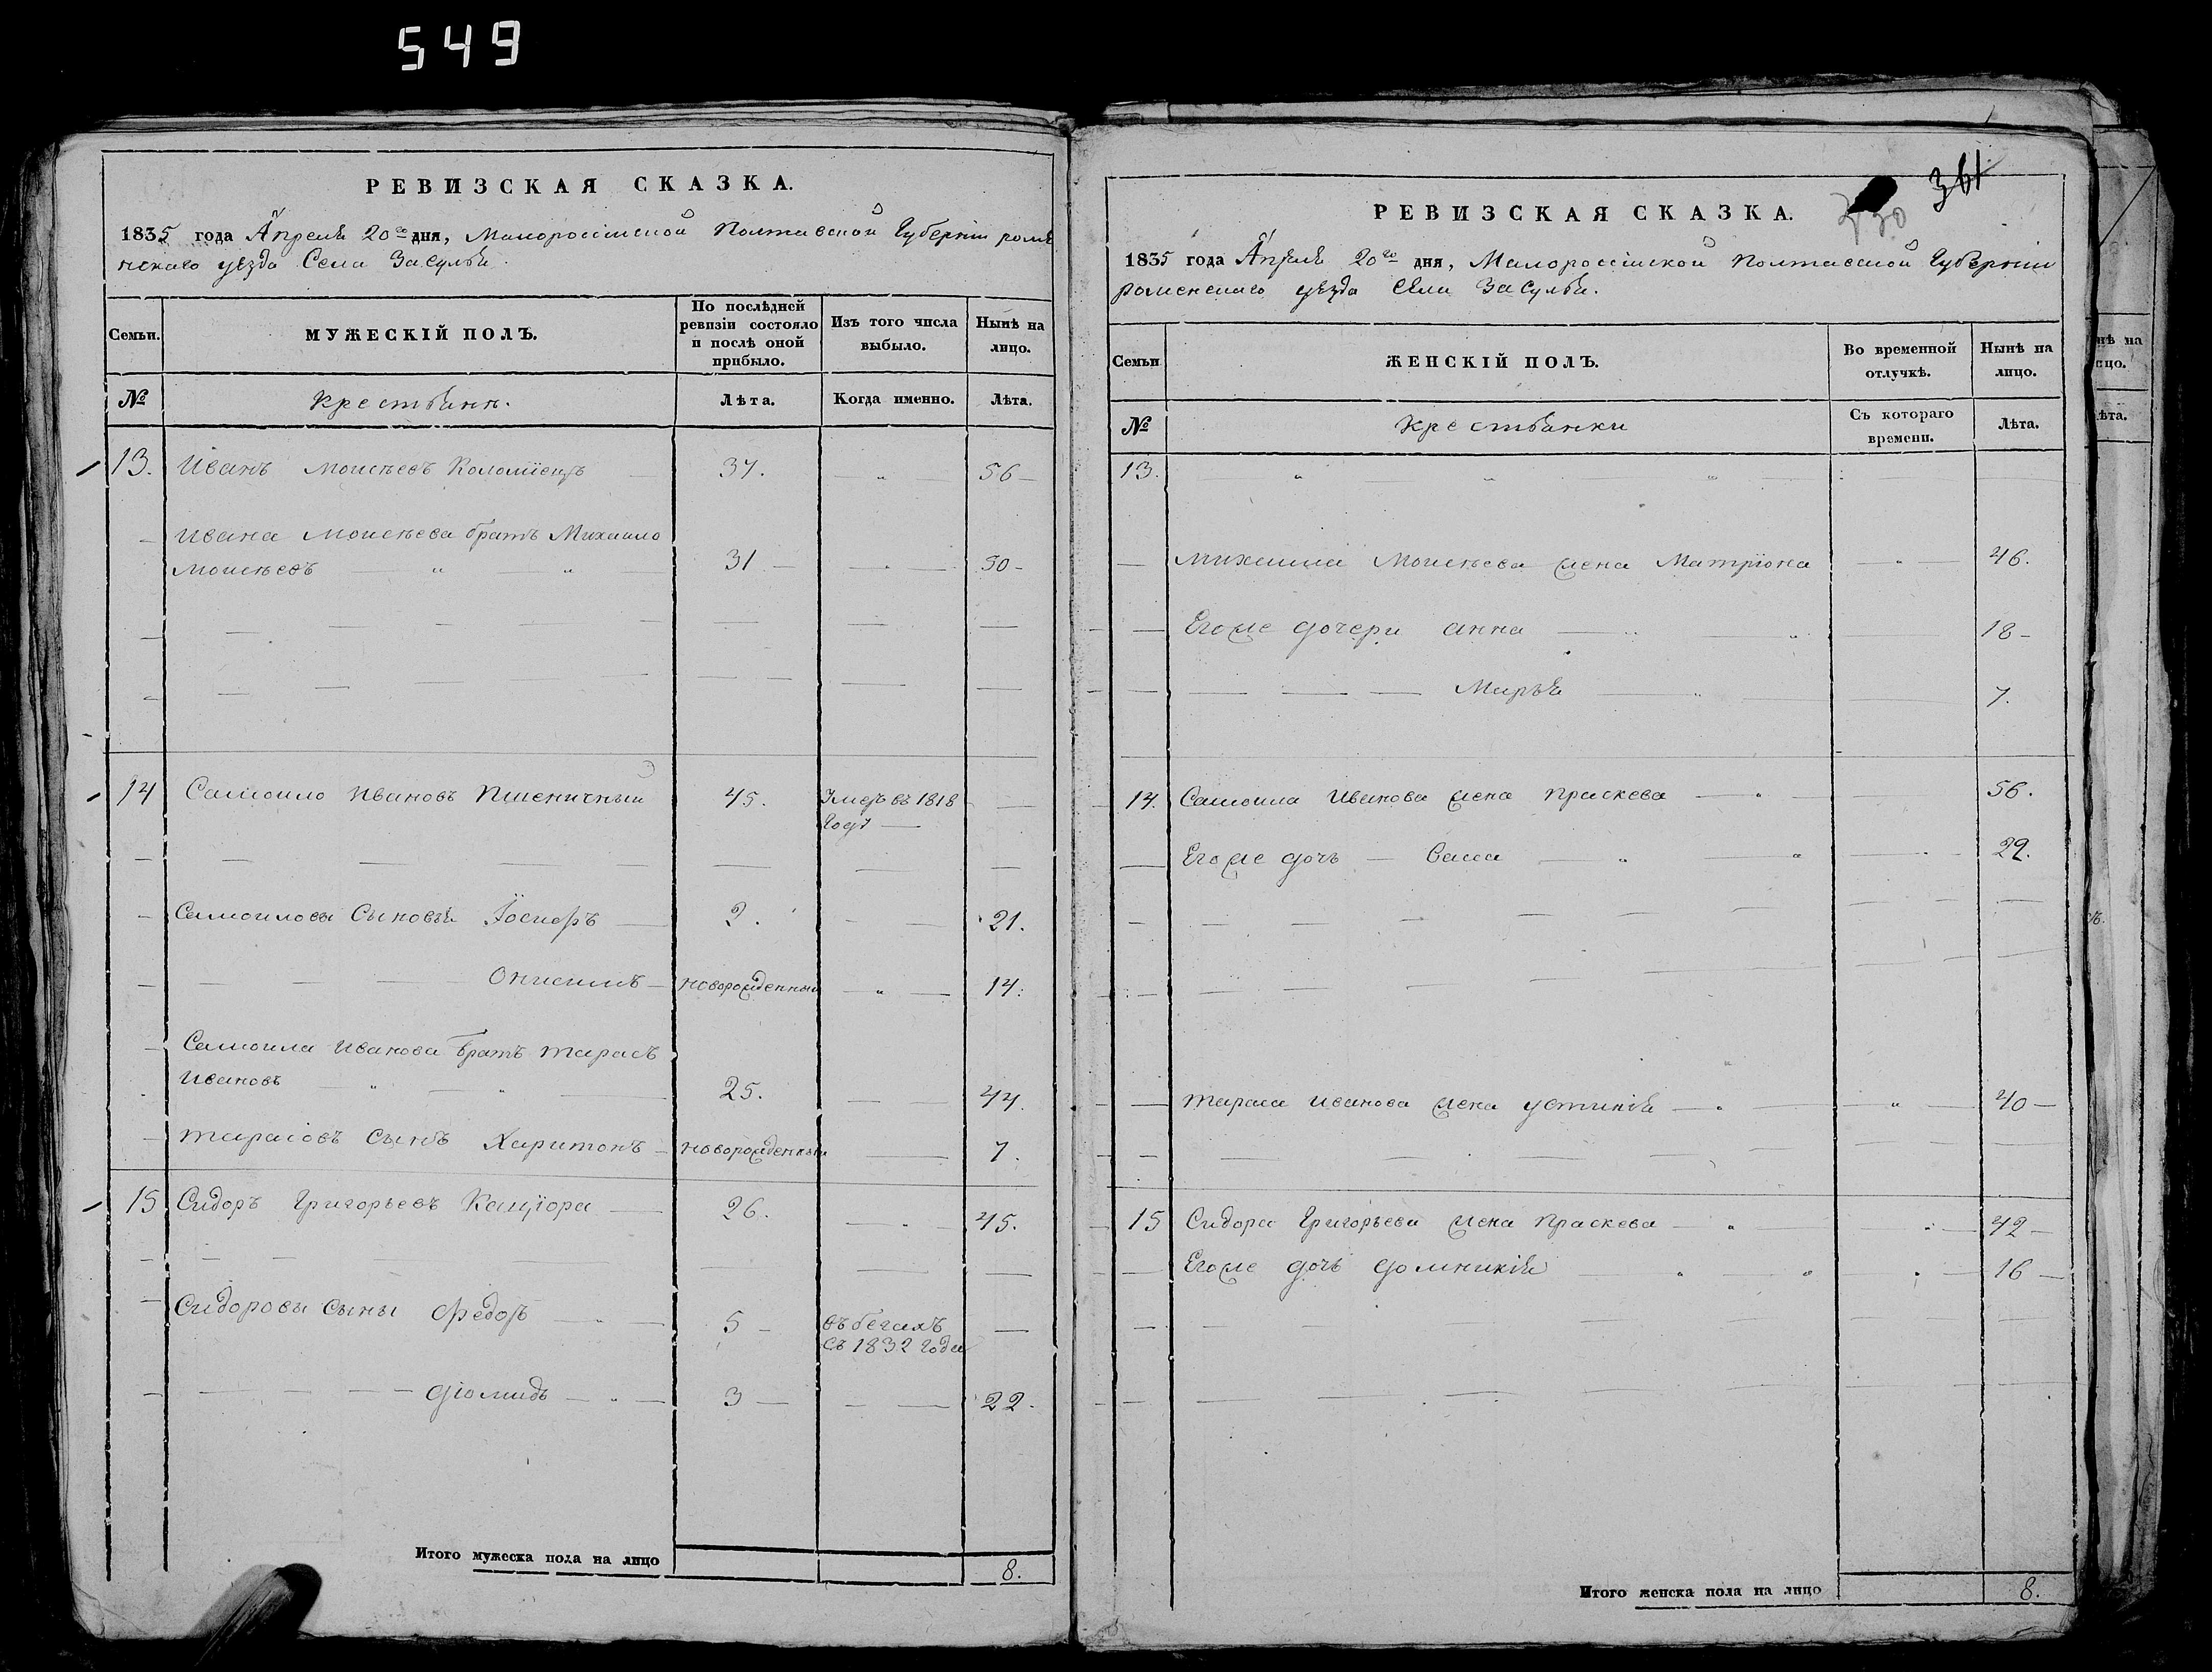 549
РЕВИЗСКАЯ СКАЗКА.
1835 года Апреля 20го дня, Малороссійской Полтавской Губерніи роме
нскаго уѣзда Села Засулья.
Семьи.
МУЖЕСКІЙ ПОЛЪ.
По послѣдней ревизіи состояло и послѣ оной прибыло.
Изъ того числа выбыло.
Нынѣ на лицо.
№
Крестьяне.
Лѣта.
Когда именно.
Лѣта.
13. Иванъ Моисѣевъ Коломіецъ 37. 56
Ивана Моисѣева братъ Михаило
Моисѣевъ 31 50
14 Самоило Ивановъ Пшеничный 45. Умеръ въ 1818
Году
Самоиловы Сыновья Іосифъ 2. 21.
Онисимъ новорожденный 14.
Самоила Иванова братъ Тарасъ
Ивановъ 25. 44.
Тарасовъ Сынъ Харитонъ новорожденный 7.
15 Сидоръ Григорьевъ 26. 45.
Сидоровы Сыны Федоръ 5 въ бегахъ
съ 1832 года
Діомидъ 3 22.
Итого мужеска пола на лицо 8.
361
РЕВИЗСКАЯ СКАЗКА.
1835 года Апреля 20го дня, Малороссійской Полтавской Губерніи
роменскаго уѣзда Села Засулья.
Семьи
ЖЕНСКІЙ ПОЛЪ.
Во временной отлучкѣ.
Нынѣ на лицо.
№
Крестьянки
Съ котораго времени.
Лѣта.
13.
Михаила Моисѣева жена Матріона 46.
Его же дочери Анна 18
Марья 7.
14. Самоила Иванова жена Праскева 56.
Его же дочь 29.
Тараса Иванова жена Устинія 40
15 Сидора Григорьева жена Праскева 42
Его же дочь Домникія 16
Итого женска пола на лицо 8.